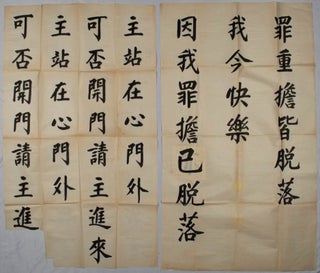 罪重擔皆脱落
我今快樂
因我罪擔已脱落
主站在心門外
可否開門請主進來
主站在心門外
可否開門請主進